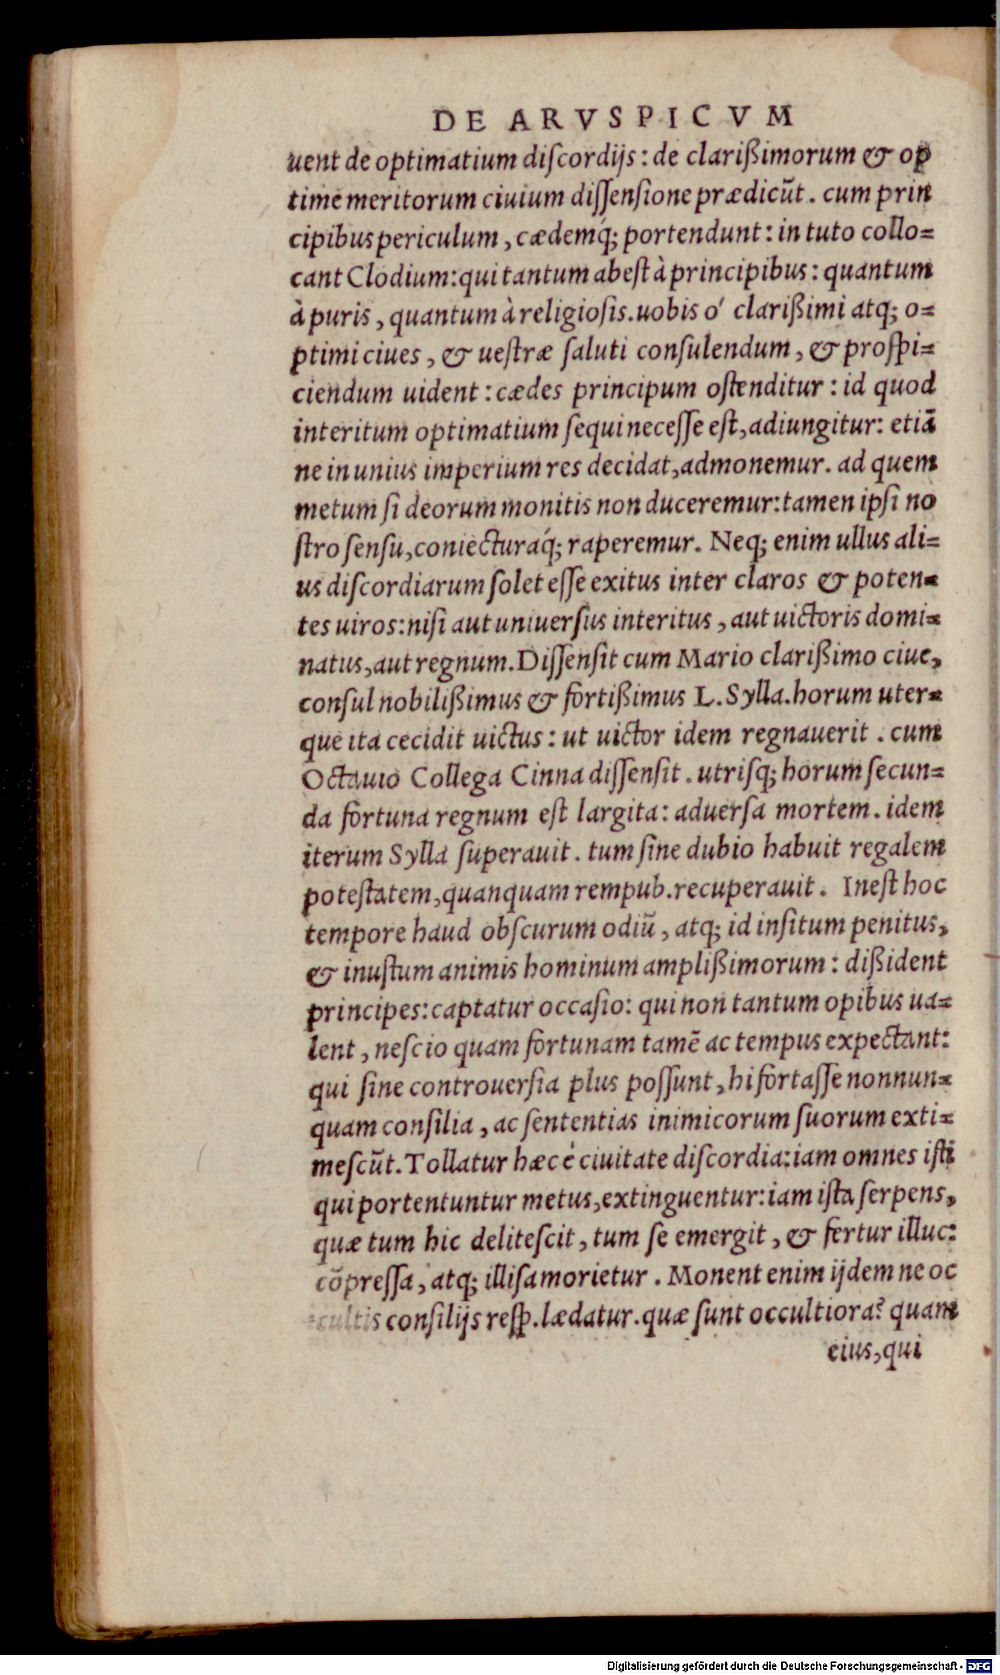 DE ARVSPICVM
uent de optimatium discordijs: de clarißimorum & op
time meritorum ciuium dissensione prædicũt. cum prin
cipibus periculum, cædemq́; portendunt: in tuto collo=
cant Clodium: qui tantum abest à principibus: quantum
à puris, quantum à religiosis. uobis ó clarißimi atq; o=
ptimi ciues, & uestræ saluti consulendum, & prospi=
ciendum uident: cædes principum ostenditur: id quod
interitum optimatium sequi necesse est, adiungitur: etiã
ne in unius imperium res decidat, admonemur. ad quem
metum si deorum monitis non duceremur: tamen ipsi no
stro sensu, coniecturaq́; raperemur. Neq; enim ullus ali=
us discordiarum solet esse exitus inter claros & poten=
tes uiros: nisi aut uniuersus interitus, aut uictoris domi=
natus, aut regnum. Dissensit cum Mario clarißimo ciue,
consul nobilißimus & fortißimus L. Sylla. horum uter=
que ita cecidit uictus: ut uictor idem regnauerit. cum
Octauio Collega Cinna dissensit. utrisq; horum secun=
da fortuna regnum est largita: aduersa mortem. idem
iterum Sylla superauit. tum sine dubio habuit regalem
potestatem, quanquam rempub. recuperauit. Inest hoc
tempore haud obscurum odiũ, atq; id insitum penitus,
& inustum animis hominum amplißimorum: dißident
principes: captatur occasio: qui non tantum opibus ua=
lent, nescio quam fortunam tamẽ ac tempus expectant:
qui sine controuersia plus possunt, hi fortasse nonnun=
quam consilia, ac sententias inimicorum suorum exti=
mescũt. Tollatur hæc è ciuitate discordia: iam omnes isti
qui portentuntur metus, extinguentur: iam ista serpens,
quæ tum hic delitescit, tum se emergit, & fertur illuc:
cõpressa, atq; illisa morietur. Monent enim ijdem ne oc
cultis consilijs resp. lædatur. quæ sunt occultiora? quam
eius, qui
Digitalisierung gefördert durch die Deutsche Forschungsgemeinschaft - DFG